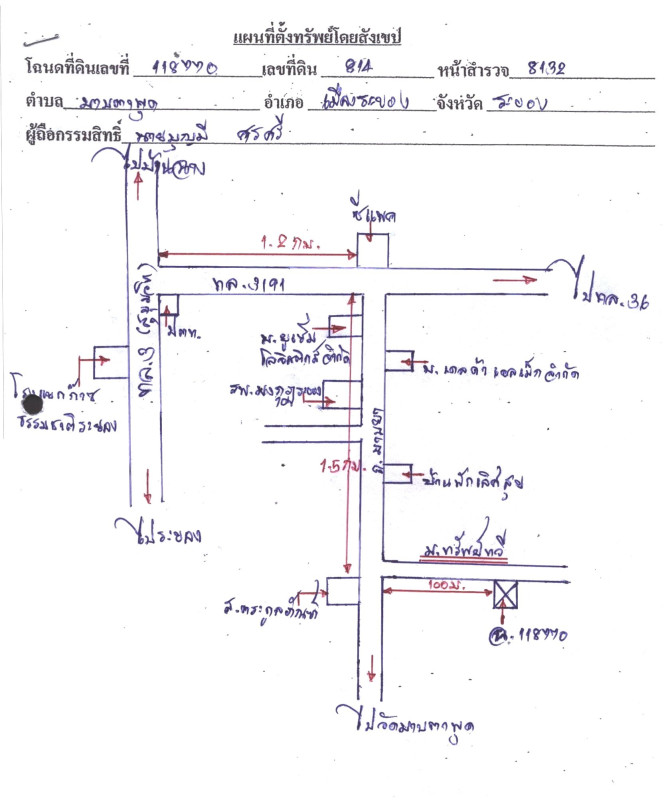 แผนที่ตั้งทรัพย์โดยสังเขป
โฉนดที่ดินเลขที่ 118770 เลขที่ดิน 814 หน้าสำรวจ 8132
ตำบล มาบตาพุด อำเภอ เมืองระยอง จังหวัด ระยอง
ผู้ถือกรรมสิทธิ์ นายบุญมี ศรศรี
ไปบ้านฉาง
ซีแพค
1.2 กม.
ทล.3191
ไป ทล.36
ทล.3 (สุขุมวิท)
ปตท.
บ.ยูเซ็น
โลจิสติกส์ จำกัด
บ.เดลต้า เอลเม็ก จำกัด
โรงแยกก๊าซ
ธรรมชาติระยอง
รพ.มงกุฎระยอง
ถ.มาบยา
1.5 กม.
บ้านพักเลิศสุข
ไประยอง
ม.ทรัพย์ทวี
100 ม.
ส.ตระกูลภัณฑ์
ฉ.118770
ไปวัดมาบตาพุด